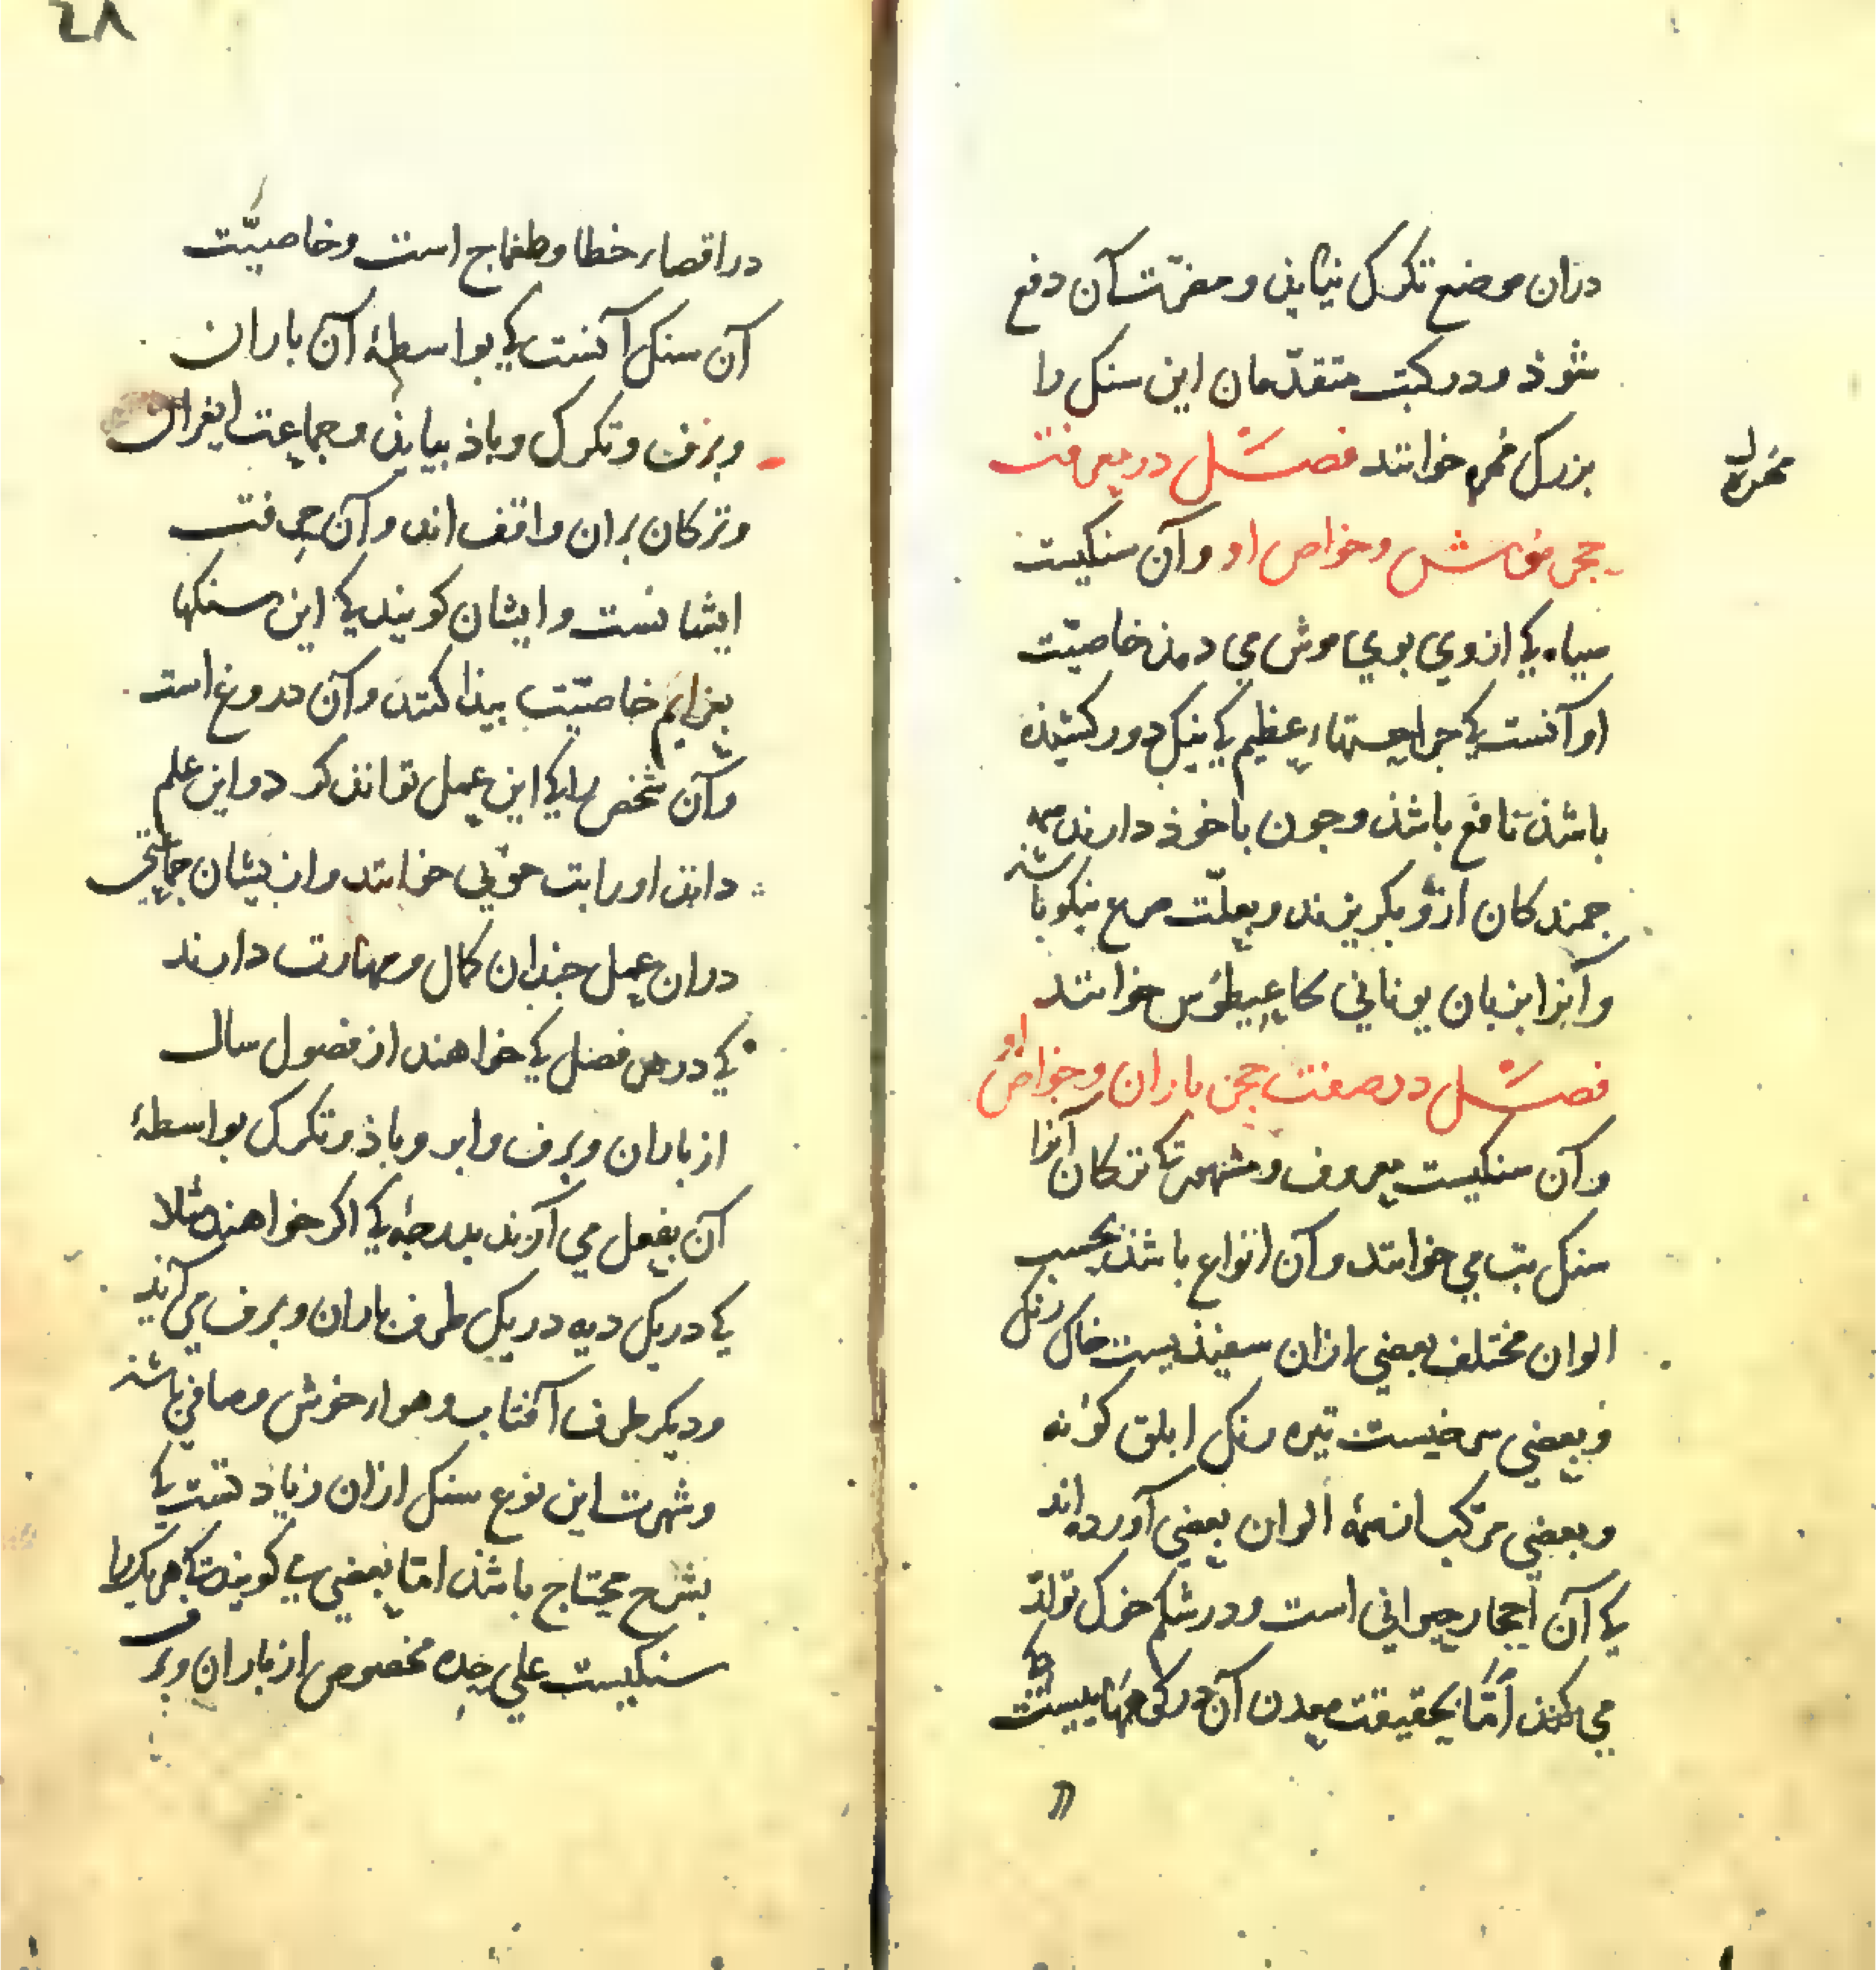 دران موضع تكرك نیاید ومضرّت آن دفع
شوذ ودر كتب متقدّمان این سنك را
بزرك مهره خوانند فصل در معرفت
حجر موش وخواص او وآن سنكیست
سیاه كی ازوی بوی موش می دمد خاصیّت
او آنست كی جراحتهاء عظیم كی بنیك دور كشیذه
باشذ نافع باشذ وجون با خوذ دارند همه
جمندكان ازو بكریزند وبعلّت صرع نیكو باشذ
وآنرا بزبان یونانی خوانند
فصل در صفت حجر باران وخواص او
وآن سنكیست معروف ومشهور كی تركان آنرا
سنك یت می خوانند وآن انواع باشذ بحسب
الوان مختلف بعضی ازان سفیذیست خاك رنك
وبعضی سرخیست تیره رنك ابلق كونه
وبعضی مركب از همۀ الوان بعضی آورده‌اند
كی آن احجار حیوانی است ودر شكم خوك تولّد
می كند امّا بحقیقت معدن آن در كوههاییست كی
٢٨
در اقصاء خطا وطمغاج است وخاصیّت
آن سنك آنست كی بواسطۀ آن باران
وبرف وتكرك وباذ بیاید وجماعت ایغران
وتركان بران واقف اند وآن حرفت
ایشانست وایشان كویند كی این سنكها
بعزایم خاصیّت بیذا كند وآن دروغ است
وآن شخص را كی این عمل تواند كرد واین علم
داند اورا یت خوانند واز یشان جماعتی
دران عمل جندان كمال ومهارت دارند
كی در هر فصل كی خواهند از فصول سال
از باران وبرف وابر وباذ وتكرك بواسطۀ
آن بفعل می آرند بدرجۀ كی اكر خواهند مثلا
كی در یك دیه در یك طرف باران وبرف می آید
ودیكر طرف آفتاب وهواء خوش وصافی باشذ
وشهرت این نوع سنك ازان زیادتست كی
بشرح محتاج باشذ امّا بعضی می كویند كی هر یك را
سنكیست علی حده مخصوص از باران وبرف